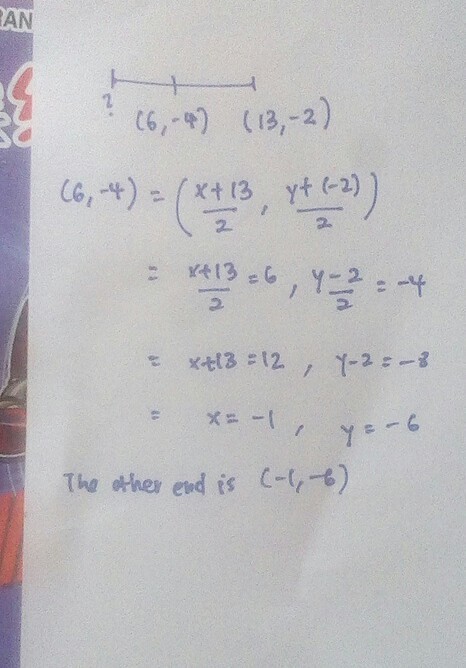 RAN
?
(6,-4) (13,-2)
(6,-4) = (x+13/2, y+(-2)/2)
= x+13/2 = 6, y-2/2 = -4
= x+13 = 12, y-2 = -8
= x = -1, y = -6
The other end is (-1,-6)